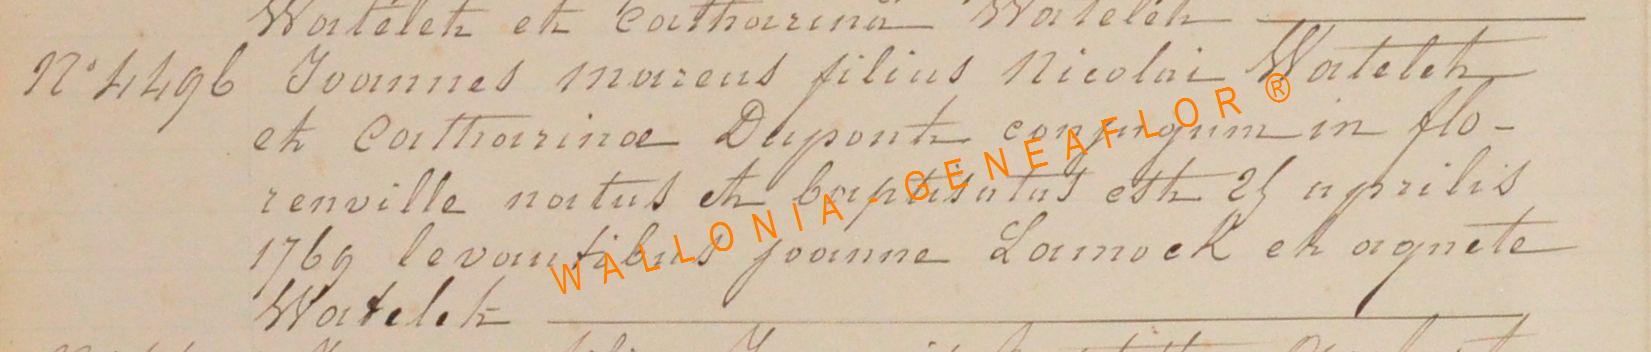 Watelet et Catharina Watelet
N° 4496 Joannes marcus filius Nicolai Watelet
et Catharinæ Dupont conjugum in flo-
renville natus et baptisatus est 25 aprilis
1769 levantibus joanne Lamock et agnete
Watelet
WALLONIA - GENEAFLOR ®